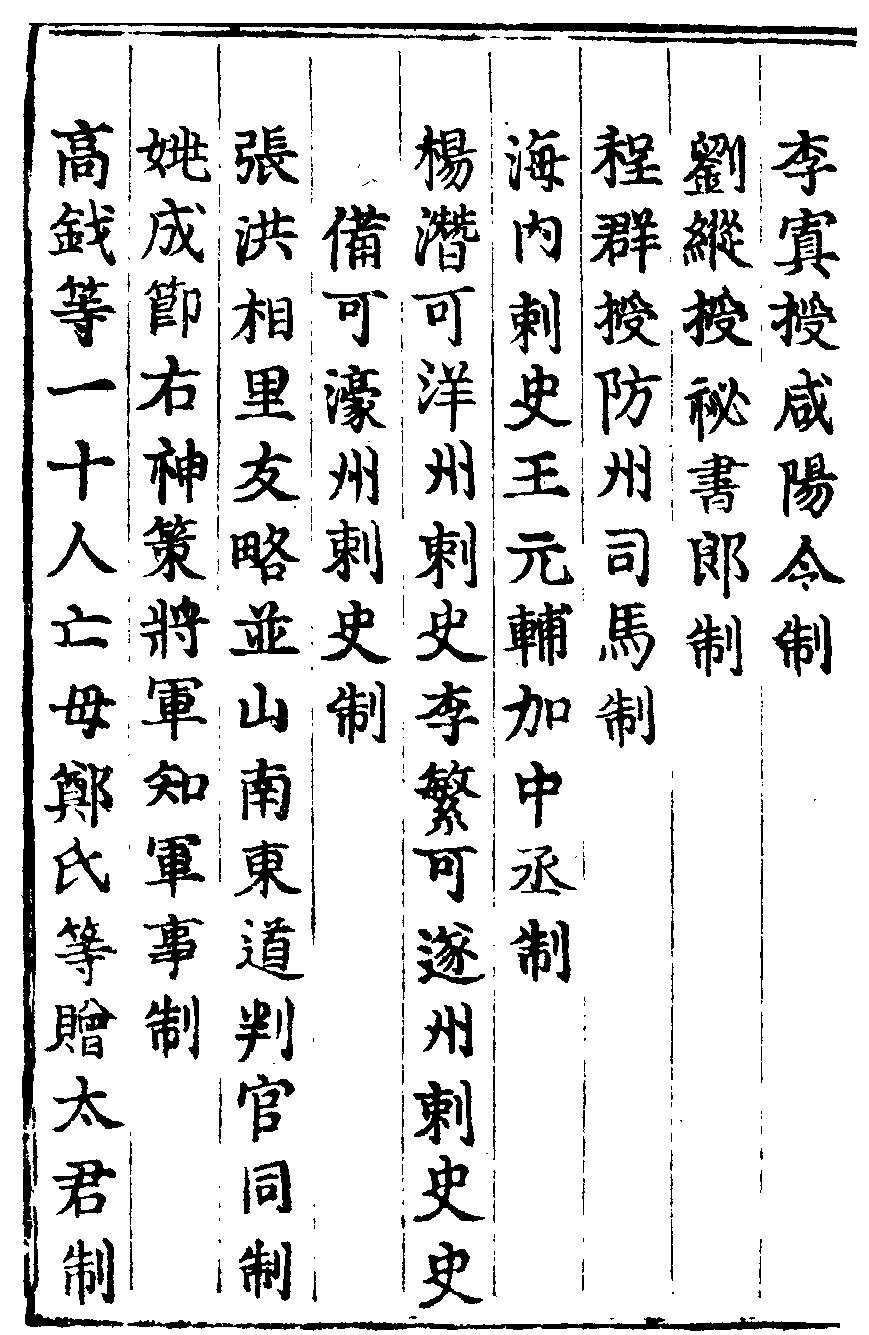 李寘授咸陽令制
劉縱授祕書郎制
程群授防州司馬制
海內刺史王元輔加中丞制
楊潛可洋州刺史李繁可遂州刺史史
備可濠州刺史制
張洪相里友略並山南東道判官同制
姚成節右神策將軍知軍事制
高鉞等一十人亡母鄭氏等贈太君制